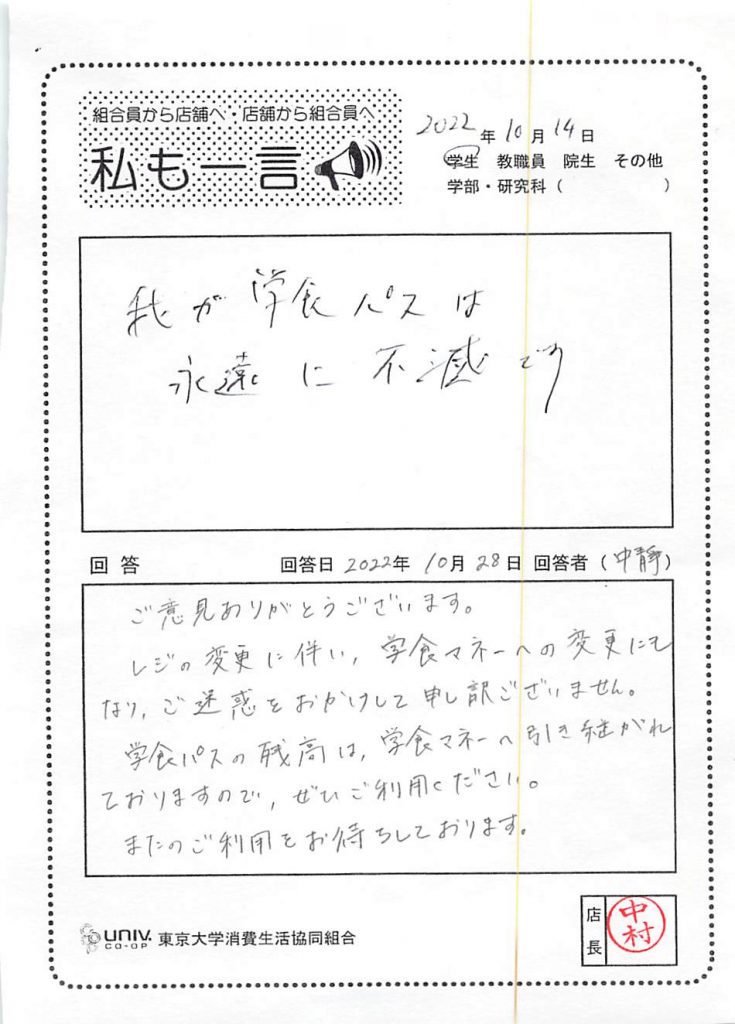 組合員から店舗へ・店舗から組合員へ
私も一言
2022年10月14日
学生 教職員 院生 その他
学部・研究科（ ）
我が学食パスは
永遠に不滅です
回答 回答日 2022年 10月 28日 回答者（中靜）
ご意見ありがとうございます。
レジの変更に伴い、学食マネーへの変更にも
なり、ご迷惑をおかけして申し訳ございません。
学食パスの残高は、学食マネーへ引き継がれ
ておりますので、ぜひご利用ください。
またのご利用をお待ちしております。
UNIV. CO-OP 東京大学消費生活協同組合
店長 中村